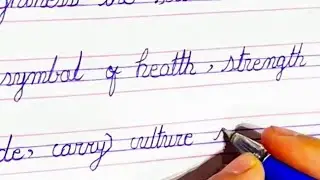 the
symbol of health, strength
de, carry culture